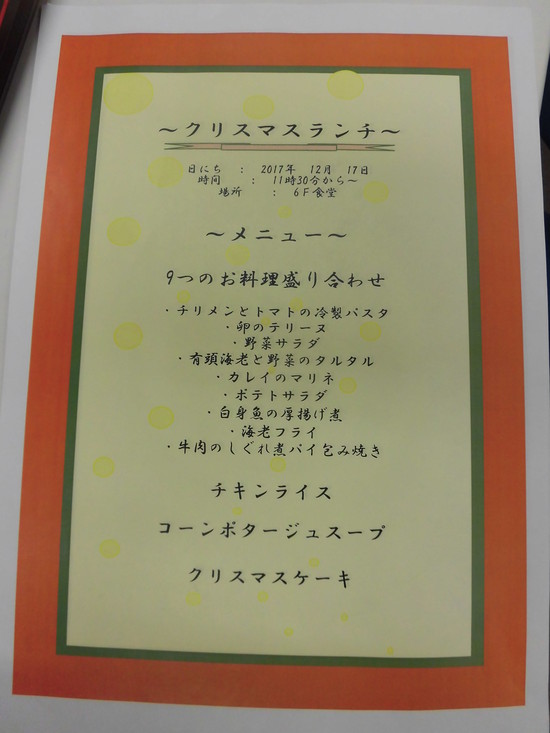 ～クリスマスランチ～
日にち　：　2017年　12月　17日
時間　　：　11時30分から～
場所　　：　6F食堂
～メニュー～
9つのお料理盛り合わせ
・チリメンとトマトの冷製パスタ
・卵のテリーヌ
・野菜サラダ
・有頭海老と野菜のタルタル
・カレイのマリネ
・ポテトサラダ
・白身魚の厚揚げ煮
・海老フライ
・牛肉のしぐれ煮パイ包み焼き
チキンライス
コーンポタージュスープ
クリスマスケーキ